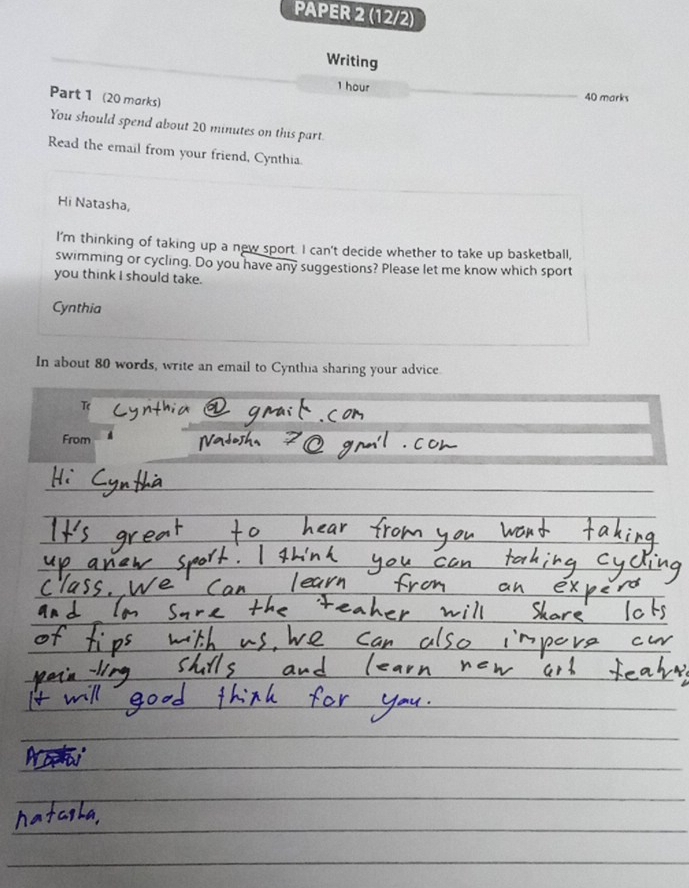 PAPER 2 (12/2)
Writing
1 hour
40 marks
Part 1 (20 marks)
You should spend about 20 minutes on this part.
Read the email from your friend, Cynthia.
Hi Natasha,
I'm thinking of taking up a new sport. I can't decide whether to take up basketball,
swimming or cycling. Do you have any suggestions? Please let me know which sport
you think I should take.
Cynthia
In about 80 words, write an email to Cynthia sharing your advice.
To Cynthia @ gmail.com
From Natasha 7@ gmail.com
Hi Cynthia
It's great to hear from you wont taking
up anew sport. I think you can taking cycling
class. We can learn from an expers
and Im sure the teaher will share lots
of tips with us. We can also impore our
pain-ling skills and learn new art
It will good think for you.
natasha,